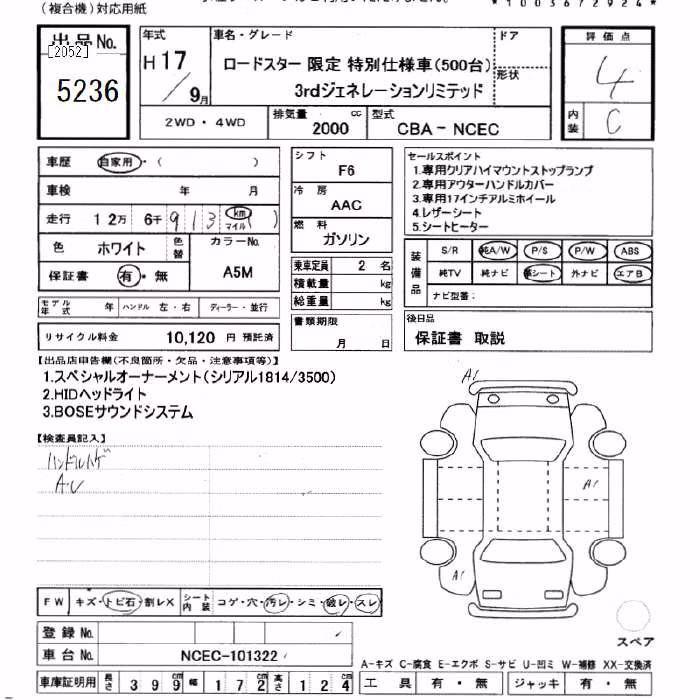 (複合機)対応用紙
*1003672924*
出品No.
[2052]
5236
年式
H17/9月
車名・グレード
ロードスター 限定 特別仕様車(500台)
3rdジェネレーションリミテッド
ドア
形状
評価点
4
内装
C
2WD・4WD
排気量
2000 cc
型式
CBA-NCEC
車歴 自家用・( )
車検 年 月
走行 12万 6千 913 km マイル )
色 ホワイト 色替
カラーNo.
A5M
保証書 有・無
シフト
F6
冷房
AAC
燃料
ガソリン
乗車定員 2 名
積載量 kg
総重量 kg
セールスポイント
1.専用クリアハイマウントストップランプ
2.専用アウターハンドルカバー
3.専用17インチアルミホイール
4.レザーシート
5.シートヒーター
装備品
S/R 純A/W P/S P/W ABS
純TV 純ナビ 革シート 外ナビ エアB
ナビ型番:
モデル年式 年 ハンドル 左・右 ディーラー・並行
リサイクル料金 10,120 円 預託済
書類期限
月 日
後日品
保証書 取説
【出品店申告欄(不良箇所・欠品・注意事項等)】
1.スペシャルオーナーメント(シリアル1814/3500)
2.HIDヘッドライト
3.BOSEサウンドシステム
【検査員記入】
ハンドルハゲ
A.U
A1
A1
A1
FW キズ・トビ石・割レX シート内装 コゲ・穴・汚レ・シミ・破レ・スレ
登録No.
車台No. NCEC-101322
スペア
A-キズ C-腐食 E-エクボ S-サビ U-凹ミ W-補修 XX-交換済
車庫証明用 長さ 399cm 幅 172cm 高さ 124cm
工具 有・無 ジャッキ 有・無